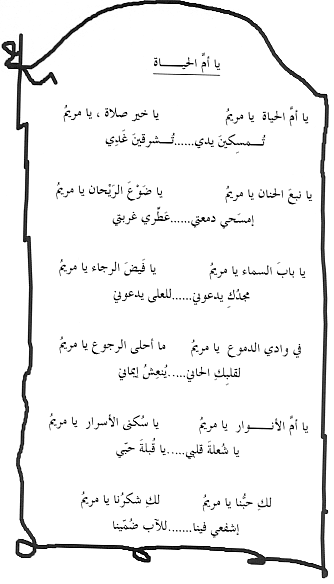 يا أمَّ الحيـــــاة
يا أمَّ الحياة يا مريمُ يا خير صلاة ، يا مريمُ
تُـــمسِكينَ يدي......تُـــشرقينَ غَدِي
يا نبعَ الحنان يا مريمُ يا ضَوْعَ الرَيْحان يا مريمُ
إمسَحي دمعتي......عَطِّري غربتي
يا بابَ السماء يا مريمُ يا فَيضَ الرجاء يا مريمُ
مجدُكِ يدعوني......للعلى يدعوني
في وادي الدموع يا مريمُ ما أحلى الرجوع يا مريمُ
لقلبِكِ الحاني.....يُنعِشُ إيماني
يا أمَّ الأنـــــوار يا مريمُ يا سُكنى الأسرار يا مريمُ
يا شُعلةَ قلبي.....يا قُبلةَ حبّي
لكِ حبُّنا يا مريمُ لكِ شكرُنا يا مريمُ
إشفعي فينا.......للآب ضُمّينا